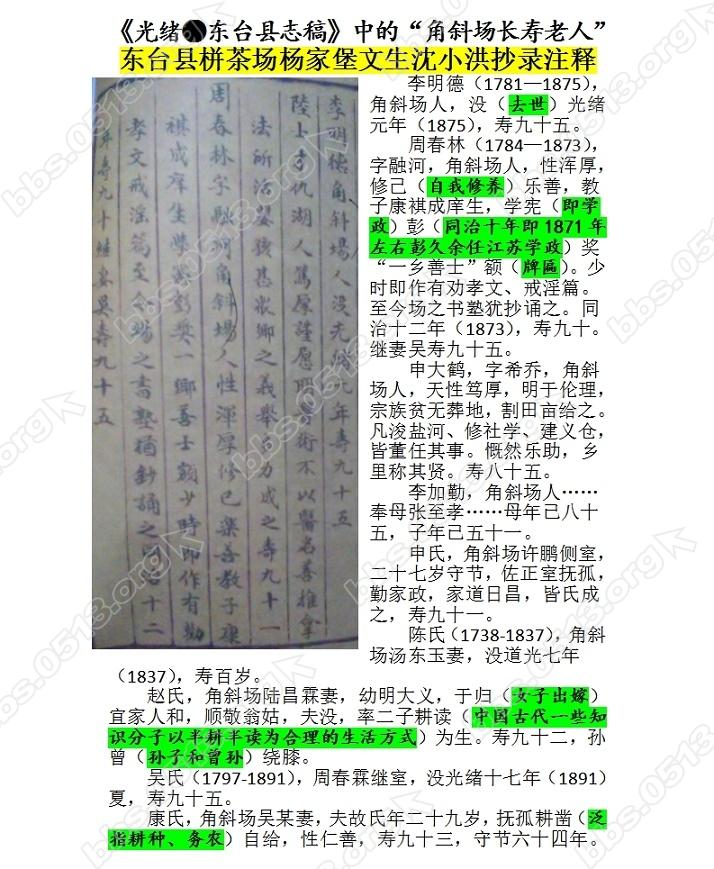 《光绪●东台县志稿》中的“角斜场长寿老人”
东台县栟茶场杨家堡文生沈小洪抄录注释
李明德角斜場人没光緒元年壽九十五
陸士仇湖人篤厚謹愿學術不以醫名善推拿
法所活嬰孩甚眾鄉之義舉力成之壽九十一
周春林字融河角斜場人性渾厚修己樂善教子康
祺成庠生學憲彭獎一鄉善士額少時即作有勸
孝文戒淫篇至今場之書塾猶鈔誦之同治十二
年壽九十繼妻吳壽九十五
李明德（1781—1875），
角斜场人，没（去世）光绪
元年（1875），寿九十五。
周春林（1784—1873），
字融河，角斜场人，性浑厚，
修己（自我修养）乐善，教
子康祺成庠生，学宪（即学
政）彭（同治十年即1871年
左右彭久余任江苏学政）奖
“一乡善士”额（牌匾）。少
时即作有劝孝文、戒淫篇。
至今场之书塾犹抄诵之。同
治十二年（1873），寿九十。
继妻吴寿九十五。
申大鹤，字希乔，角斜
场人，天性笃厚，明于伦理，
宗族贫无葬地，割田亩给之。
凡浚盐河、修社学、建义仓，
皆董任其事。慨然乐助，乡
里称其贤。寿八十五。
李加勤，角斜场人……
奉母张至孝……母年已八十
五，子年已五十一。
申氏，角斜场许鹏侧室，
二十七岁守节，佐正室抚孤，
勤家政，家道日昌，皆氏成
之，寿九十一。
陈氏（1738-1837），角斜
场汤东玉妻，没道光七年
（1837），寿百岁。
赵氏，角斜场陆昌霖妻，幼明大义，于归（女子出嫁）
宜家人和，顺敬翁姑，夫没，率二子耕读（中国古代一些知
识分子以半耕半读为合理的生活方式）为生。寿九十二，孙
曾（孙子和曾孙）绕膝。
吴氏（1797-1891），周春霖继室，没光绪十七年（1891）
夏，寿九十五。
康氏，角斜场吴某妻，夫故氏年二十九岁，抚孤耕凿（泛
指耕种、务农）自给，性仁善，寿九十三，守节六十四年。
bbs.0513.org